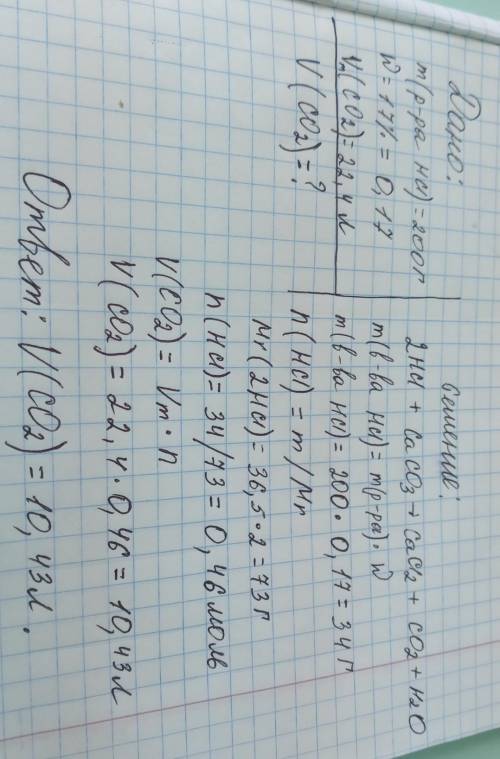 Дано:
m(р-ра HCl)=200г
W=17%=0,17
Vm(CO2)=22,4л
V(CO2)=?
Решение:
2HCl + CaCO3 → CaCl2 + CO2 + H2O
m(в-ва HCl)=m(р-ра)·W
m(в-ва HCl)=200·0,17=34г
n(HCl)=m/Mr
Mr(2HCl)=36,5·2=73г
n(HCl)=34/73=0,46моль
V(CO2)=Vm·n
V(CO2)=22,4·0,46=10,43л
Ответ: V(CO2)=10,43л.